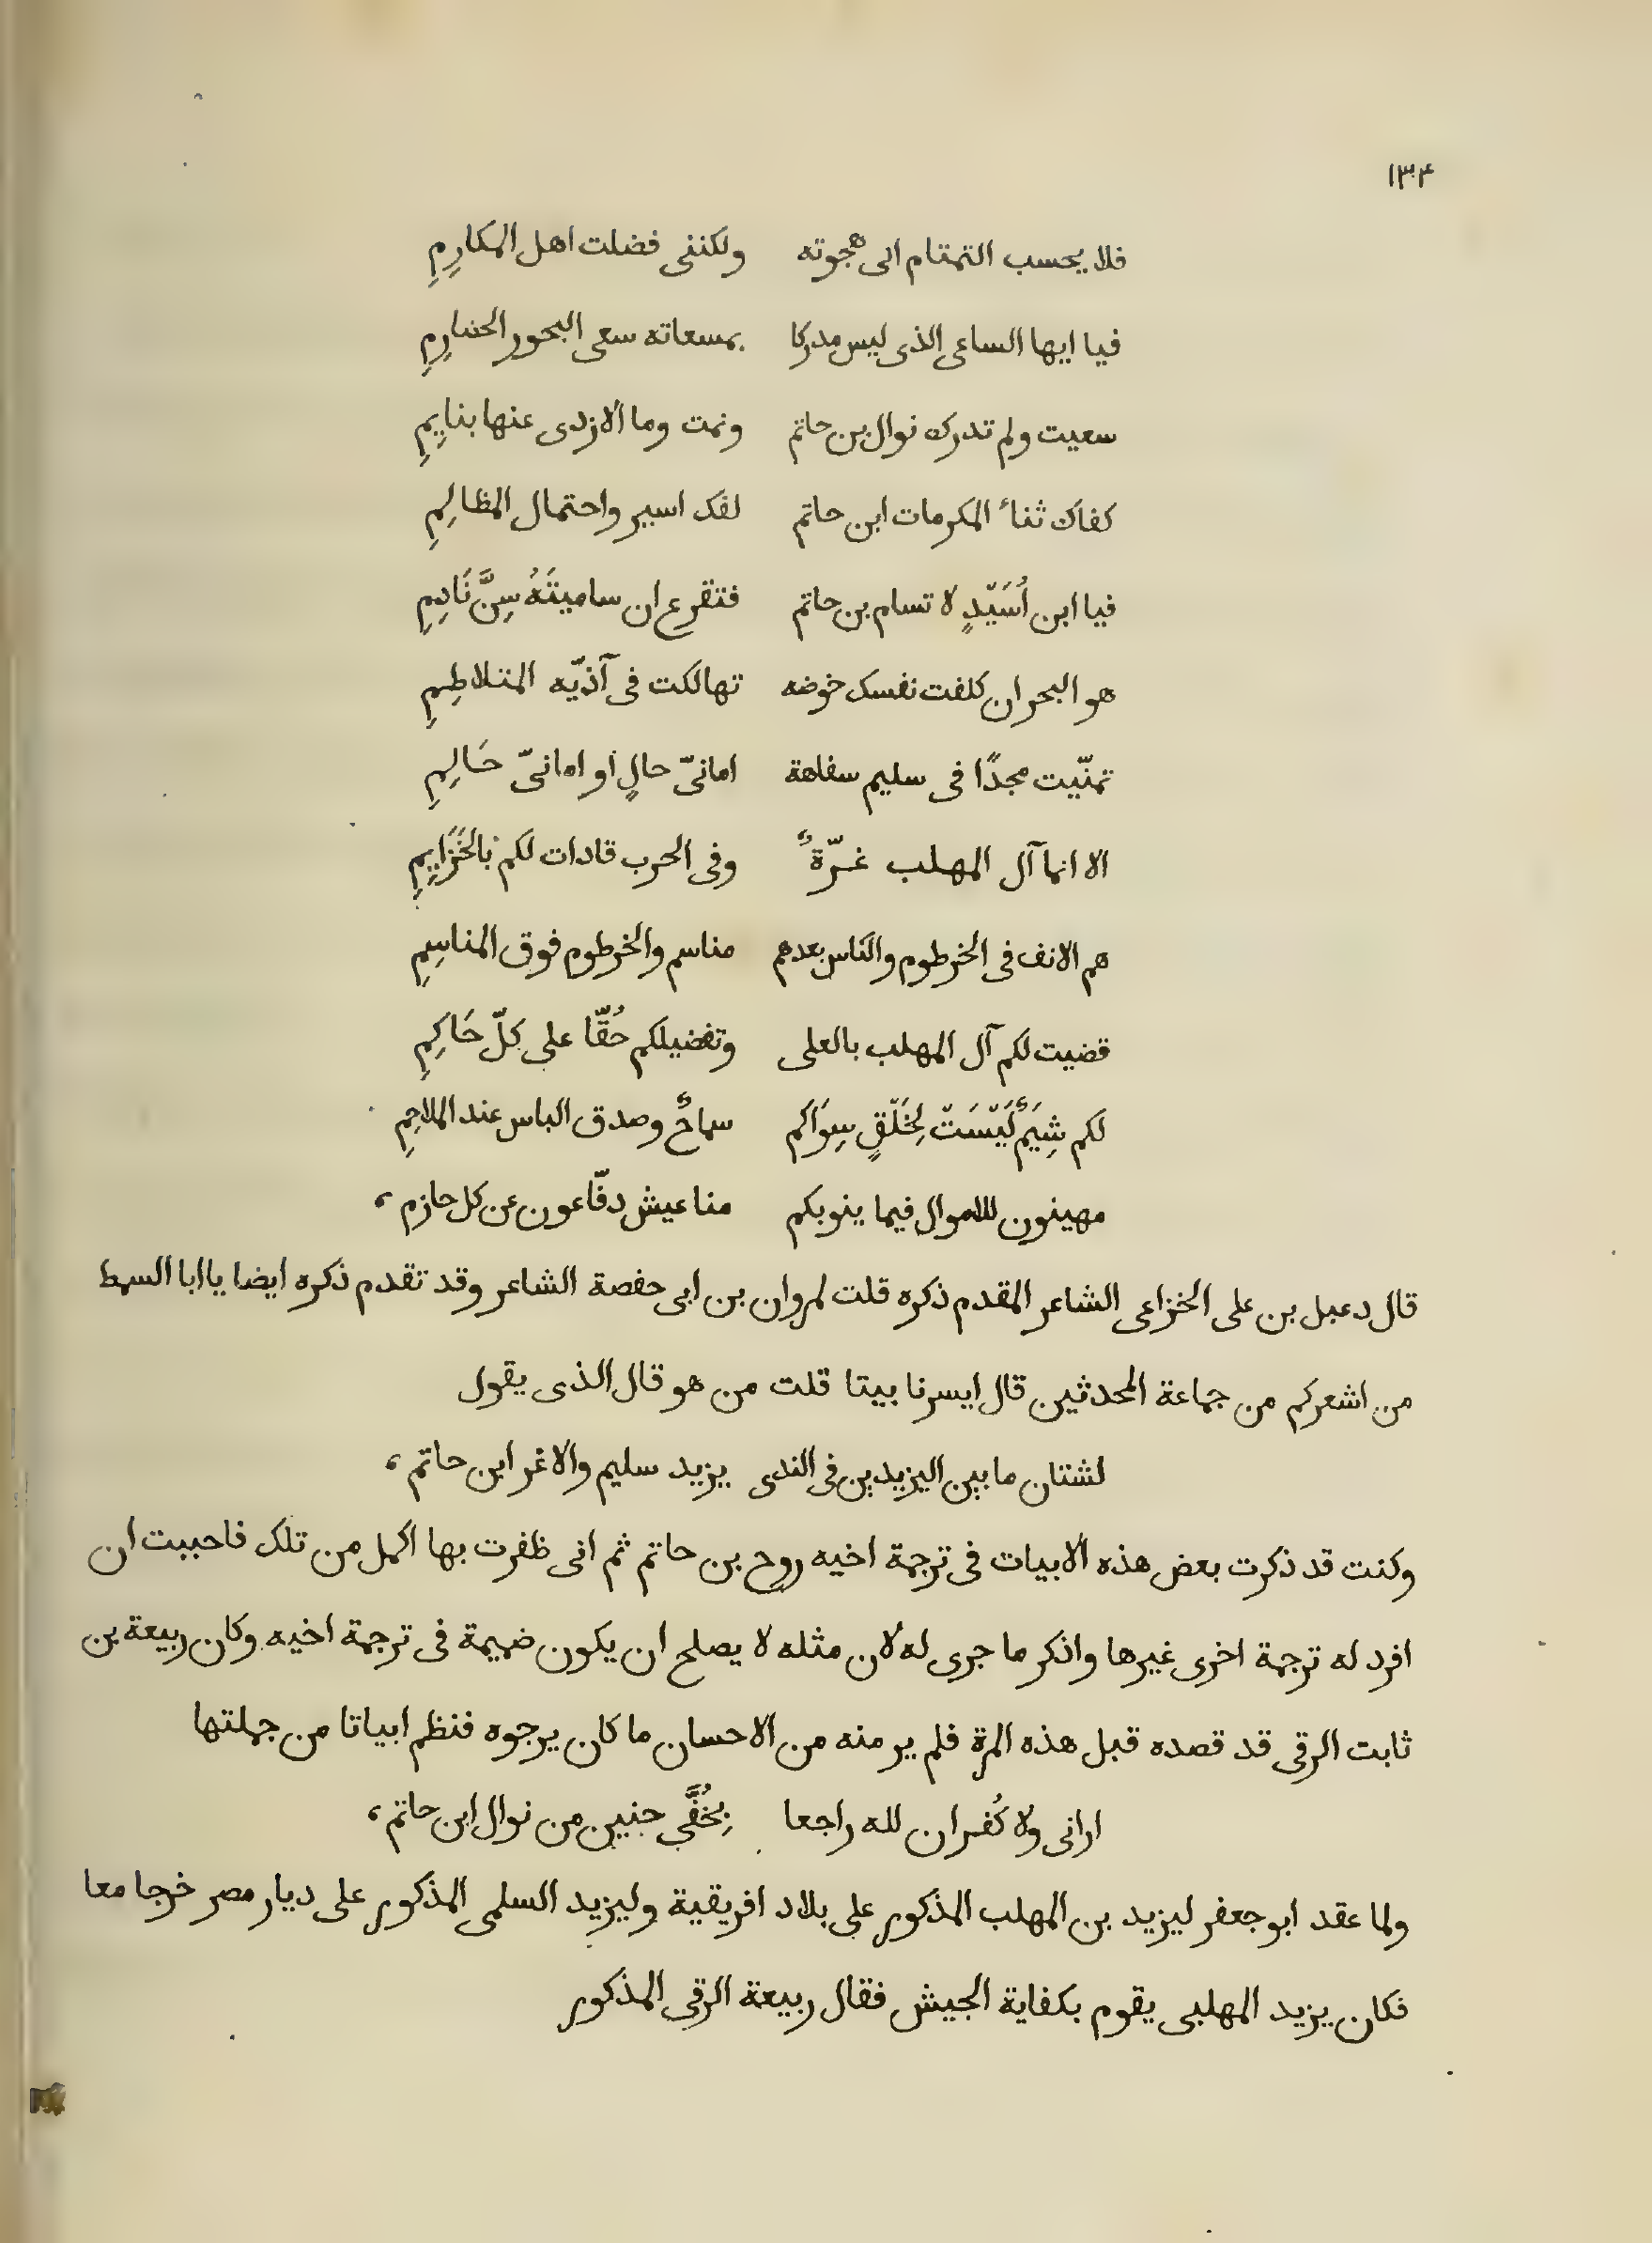 ١٣٤
فلا يحسب التمتام انى هجوته ولكننى فضلت اهل المكارِمِ
فيا ايها الساعى الذى ليس مدركا بمسعاته سعى البحور الخضارِمِ
سعيت ولم تدرك نوال بن حاتم ونمت وما الازدى عنها بنايِمِ
كفاك ثناء المكرمات ابن حاتم لفك اسير واحتمال المظالِمِ
فيا ابن اُسَيّدٍ لا تسام بن حاتم فتقرع ان ساميتَهُ سِنَّ نَادِمِ
هو البحر ان كلفت نفسك خوضه تهالكت فى آذيّه المتلاطِمِ
تمنّيت مجدًا فى سليم سفاهة امانىّ حالٍ او امانىّ حَالِمِ
الا انما آل المهلب غرّةٌ وفى الحرب قادات لكم بالخَزَايِمِ
هم الانف فى الخرطوم والناس بعدهم مناسم والخرطوم فوق المناسِمِ
قضيت لكم آل المهلب بالعلى وتفضيلكم حُقّا على كلّ حَاكِمِ
لكم شِيَمٌ لَيْسَتْ لِخَلْقٍ سِوَاكم سماحٌ وصدق الباس عند الملاحِمِ
مهينون للاموال فيما ينوبكم مناعيش دفّاعون عن كل حازم،
قال دعبل بن على الخزاعى الشاعر المقدم ذكره قلت لمروان بن ابى حفصة الشاعر وقد تقدم ذكره ايضا يا ابا السمط
من اشعركم من جماعة المحدثين قال ايسرنا بيتا قلت من هو قال الذى يقول
لشتان ما بين اليزيدين فى الندى يزيد سليم والاغر ابن حاتم،
وكنت قد ذكرت بعض هذه الابيات فى ترجمة اخيه روح بن حاتم ثم انى ظفرت بها اكمل من تلك فاحببت ان
افرد له ترجمة اخرى غيرها واذكر ما جرى له لان مثله لا يصلح ان يكون ضميمة فى ترجمة اخيه وكان ربيعة بن
ثابت الرقى قد قصده قبل هذه المرة فلم ير منه من الاحسان ما كان يرجوه فنظم ابياتا من جملتها
ارانى ولا كُفران لله راجعا بِخُفَّى حنين من نوال ابن حاتم،
ولما عقد ابو جعفر ليزيد بن المهلب المذكور على بلاد افريقية وليزيد السلمى المذكور على ديار مصر خرجا معا
فكان يزيد المهلبى يقوم بكفاية الجيش فقال ربيعة الرقى المذكور